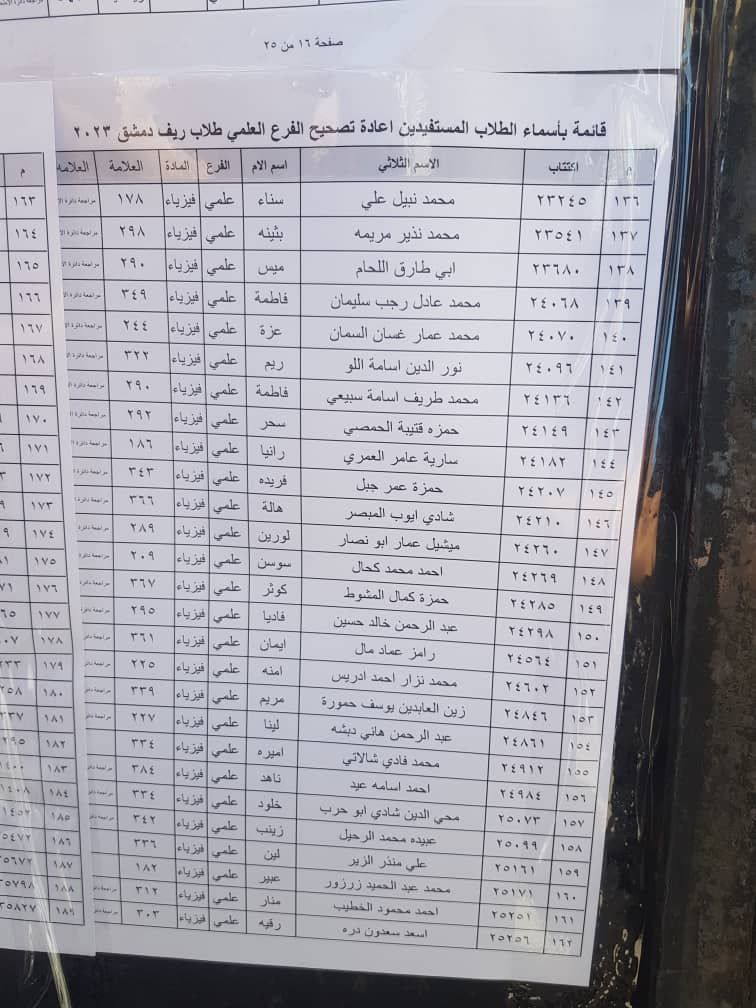 صفحة ١٦ من ٢٥
قائمة بأسماء الطلاب المستفيدين اعادة تصحيح الفرع العلمي طلاب ريف دمشق ٢٠٢٣
م اكتتاب الاسم الثلاثي اسم الام الفرع المادة العلامة العلامه
١٣٦ ٢٣٢٤٥ محمد نبيل علي سناء علمي فيزياء ١٧٨ مراجعة دائرة الا
١٣٧ ٢٣٥٤١ محمد نذير مريمه بثينه علمي فيزياء ٢٩٨ مراجعة دائرة الا
١٣٨ ٢٣٦٨٠ ابي طارق اللحام ميس علمي فيزياء ٢٩٠ مراجعة دائرة الا
١٣٩ ٢٤٠٦٨ محمد عادل رجب سليمان فاطمة علمي فيزياء ٣٤٩ مراجعة دائرة الا
١٤٠ ٢٤٠٧٠ محمد عمار غسان السمان عزة علمي فيزياء ٢٤٤ مراجعة دائرة الا
١٤١ ٢٤٠٩٦ نور الدين اسامة اللو ريم علمي فيزياء ٣٢٢ مراجعة دائرة الا
١٤٢ ٢٤١٣٦ محمد طريف اسامة سبيعي فاطمة علمي فيزياء ٢٩٠ مراجعة دائرة الا
١٤٣ ٢٤١٤٩ حمزه قتيبة الحمصي سحر علمي فيزياء ٢٩٢ مراجعة دائرة الا
١٤٤ ٢٤١٨٢ سارية عامر العمري رانيا علمي فيزياء ١٨٦ مراجعة دائرة الا
١٤٥ ٢٤٢٠٧ حمزة عمر جبل فريده علمي فيزياء ٣٤٣ مراجعة دائرة ا
١٤٦ ٢٤٢١٠ شادي ايوب المبصر هالة علمي فيزياء ٣٦٦ مراجعة دائرة ا
١٤٧ ٢٤٢٦٠ ميشيل عمار ابو نصار لورين علمي فيزياء ٢٨٩ مراجعة دائرة
١٤٨ ٢٤٢٦٩ احمد محمد كحال سوسن علمي فيزياء ٢٠٩ مراجعة دائرة
١٤٩ ٢٤٢٨٥ حمزة كمال المشوط كوثر علمي فيزياء ٣٦٧ مراجعة دائرة
١٥٠ ٢٤٢٩٨ عبد الرحمن خالد حسين فاديا علمي فيزياء ٢٩٥ مراجعة دائرة
١٥١ ٢٤٥٦٤ رامز عماد مال ايمان علمي فيزياء ٣٦١ مراجعة دائرة
١٥٢ ٢٤٦٠٢ محمد نزار احمد ادريس امنه علمي فيزياء ٢٢٥ مراجعة دائرة
١٥٣ ٢٤٨٤٦ زين العابدين يوسف حمورة مريم علمي فيزياء ٣٣٩ مراجعة دائرة
١٥٤ ٢٤٨٦١ عبد الرحمن هاني دبشه لينا علمي فيزياء ٢٢٧ مراجعة دائرة
١٥٥ ٢٤٩١٢ محمد فادي شالاتي اميره علمي فيزياء ٣٣٤ مراجعة دائر
١٥٦ ٢٤٩٨٤ احمد اسامه عيد ناهد علمي فيزياء ٣٨٤ مراجعة دائر
١٥٧ ٢٥٠٧٣ محي الدين شادي ابو حرب خلود علمي فيزياء ٣٣٤ مراجعة دائر
١٥٨ ٢٥٠٩٩ عبيده محمد الرحيل زينب علمي فيزياء ٣٤٢ مراجعة دائر
١٥٩ ٢٥١٦١ علي منذر الزير لين علمي فيزياء ٣٣٦
١٦٠ ٢٥١٧١ محمد عبد الحميد زرزور عبير علمي فيزياء ١٨٢
١٦١ ٢٥٢٥١ احمد محمود الخطيب منار علمي فيزياء ٣١٢ مراجعة دائر
١٦٢ ٢٥٢٥٦ اسعد سعدون دره رقيه علمي فيزياء ٣٠٣ مراجعة دائر
م
١٦٣
١٦٤
١٦٥
١٦٦
١٦٧
١٦٨
١٦٩
١٧٠
١٧١
١٧٢
١٧٣
١٧٤
١٧٥
١٧٦
١٧٧
١٧٨
١٧٩
١٨٠
١٨١
١٨٢
١٨٣
١٨٤
١٨٥
١٨٦
١٨٧
١٨٨
١٨٩